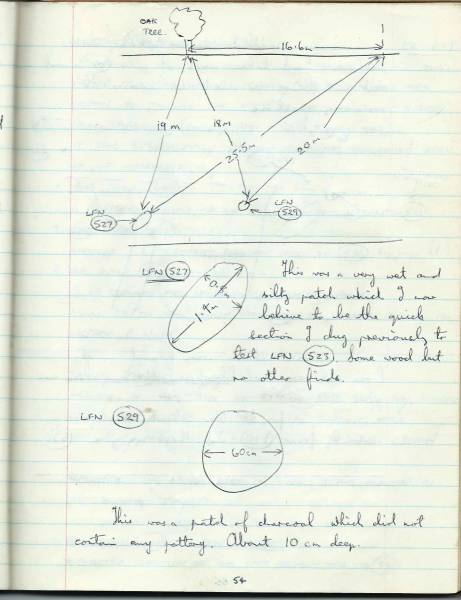 OAK
TREE.
16.6m
19 m
18m
25.5m
20m
LFN
527
LFN
529
LFN 527
0.8m
1.4m
This was a very wet and
silty patch which I now
believe to be the quick
section I dug previously to
test LFN 523. Some wood but
no other finds.
LFN 529
60cm
This was a patch of charcoal which did not
contain any pottery. About 10 cm deep.
54